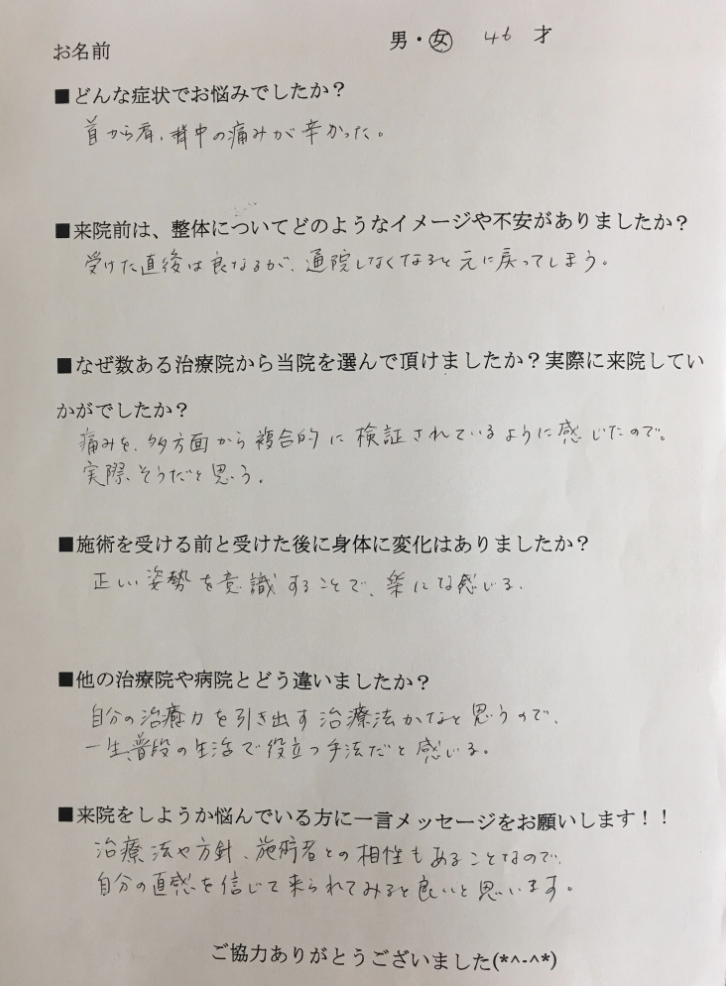 お名前 男・女 46 才
■どんな症状でお悩みでしたか？
首から肩、背中の痛みが辛かった。
■来院前は、整体についてどのようなイメージや不安がありましたか？
受けた直後は良なるが、通院しなくなると元に戻ってしまう。
■なぜ数ある治療院から当院を選んで頂けましたか？実際に来院してい
かがでしたか？
痛みを、多方面から複合的に検証されているように感じたので。
実際、そうだと思う。
■施術を受ける前と受けた後に身体に変化はありましたか？
正しい姿勢を意識することで、楽にな感じる。
■他の治療院や病院とどう違いましたか？
自分の治癒力を引き出す治療法かなと思うので、
一生、普段の生活で役立つ手法だと感じる。
■来院をしようか悩んでいる方に一言メッセージをお願いします！！
治療法や方針、施術者との相性もあることなので、
自分の直感を信じて来られてみると良いと思います。
ご協力ありがとうございました(*^-^*)